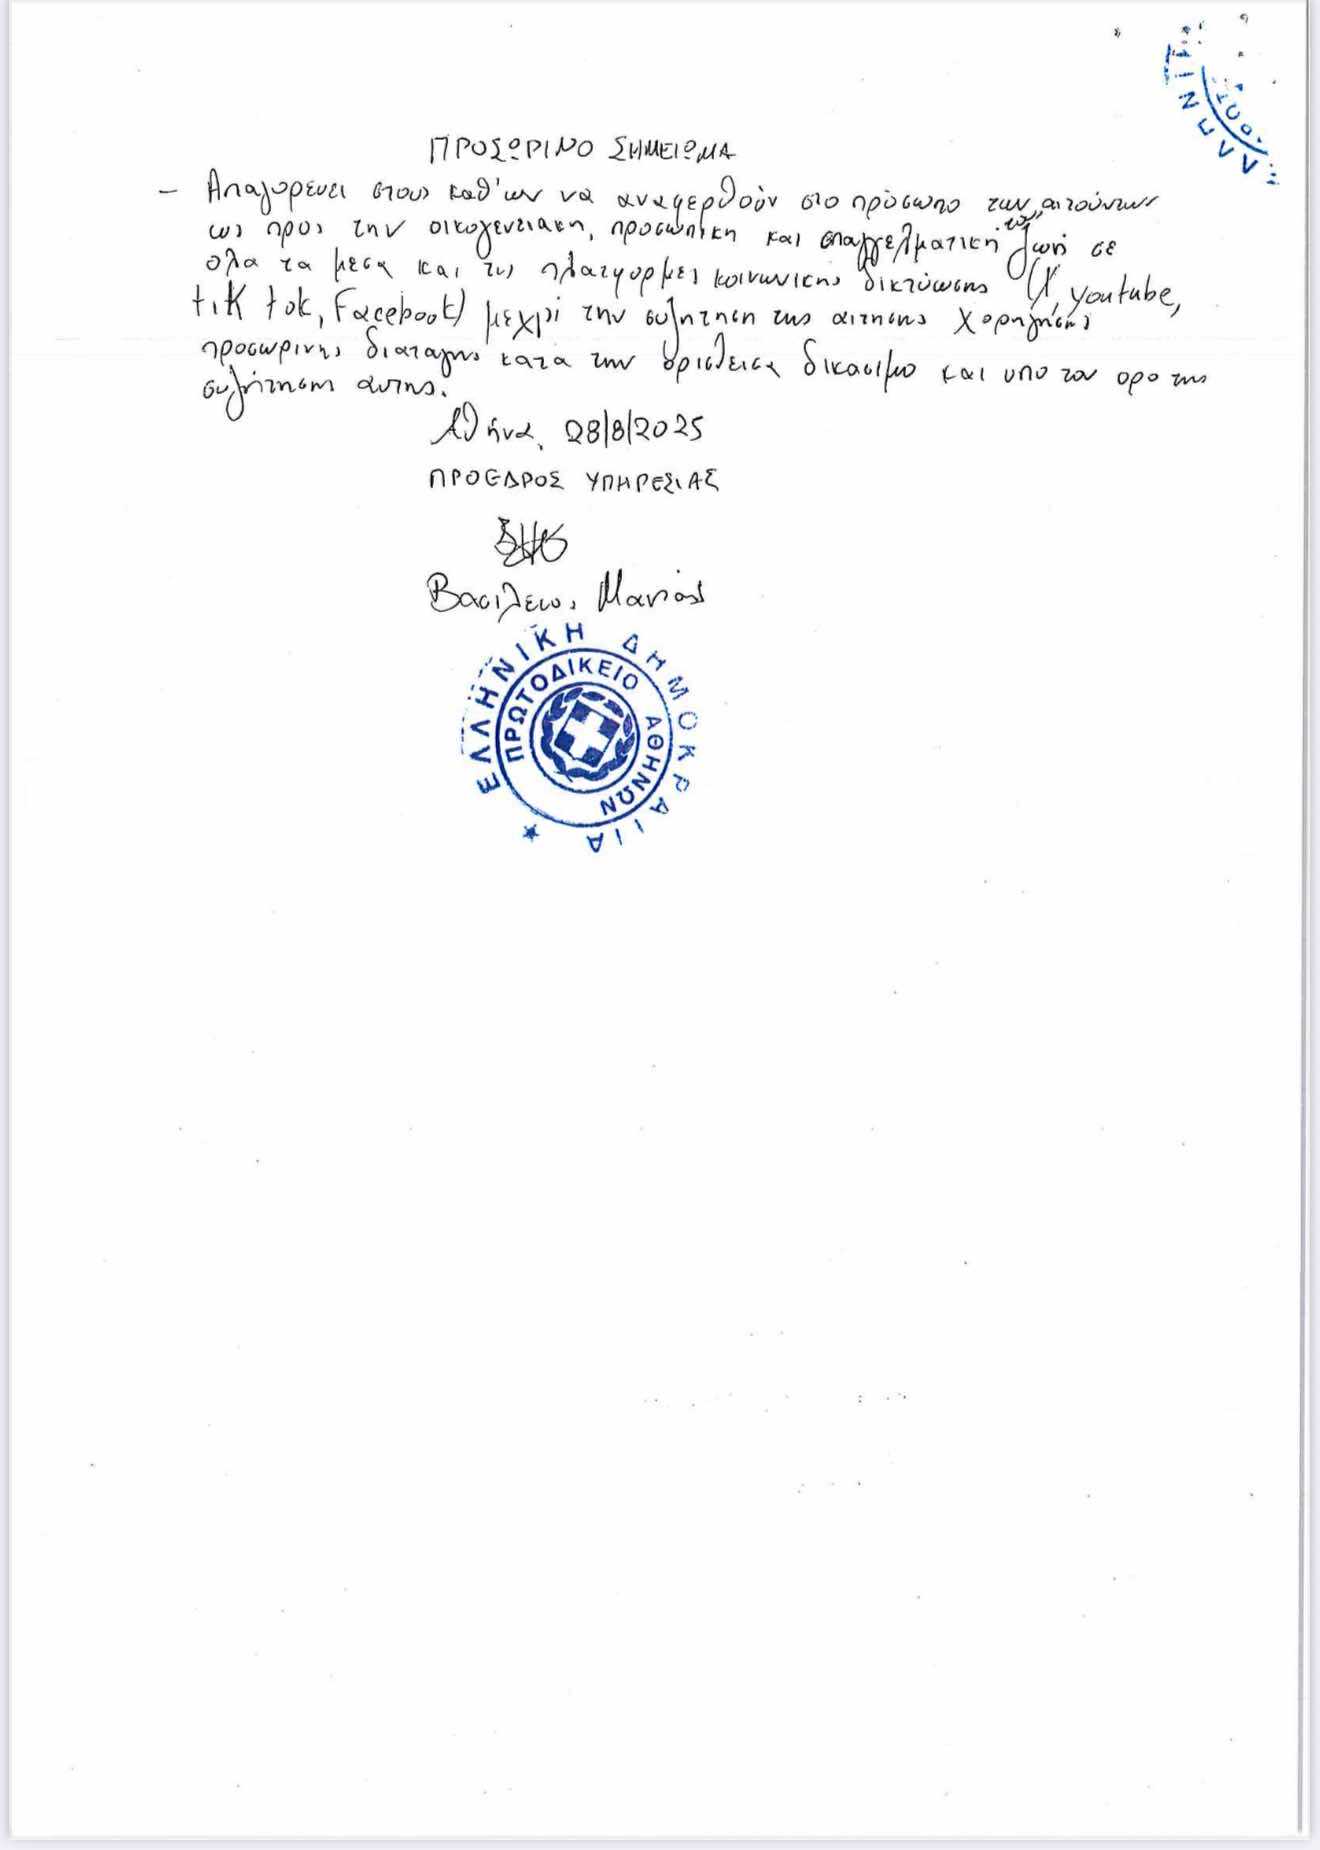 ΠΡΟΣΩΡΙΝΟ ΣΗΜΕΙΩΜΑ
– Απαγορευει στους καθ'ων να αναφερθούν στο πρόσωπο των αιτούντων
ως προς την οικογενειακη, προσωπικη και επαγγελματική τους ζωή σε
ολα τα μεσα και τις πλατφορμες κοινωνικης δικτύωσης (X, youtube,
tiK tok, Facebook) μεχρί την συζητηση της αιτησης χορηγησης
προσωρινης διαταγης κατα την ορισθεισα δικασιμο και υπο τον ορο της
συζήτησης αυτης.
Αθήνα, 28/8/2025
ΠΡΟΕΔΡΟΣ ΥΠΗΡΕΣΙΑΣ
Βασιλειος
ΕΛΛΗΝΙΚΗ ΔΗΜΟΚΡΑΤΙΑ
ΠΡΩΤΟΔΙΚΕΙΟ ΑΘΗΝΩΝ